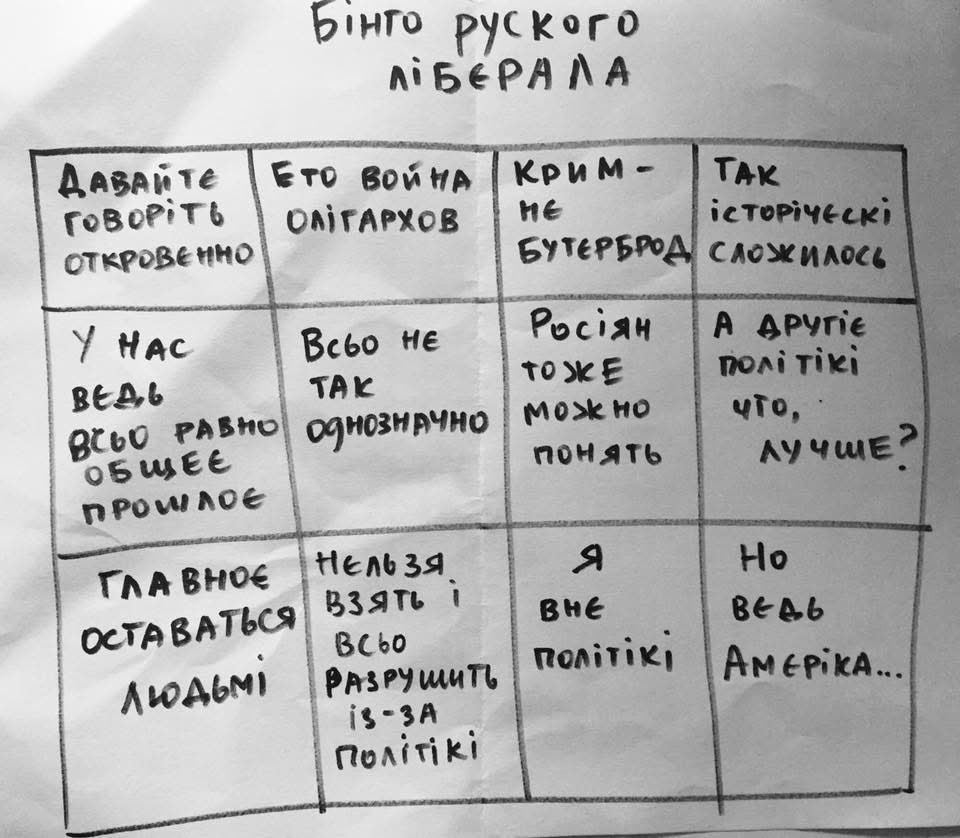 Бінго руского
лібєрала
Давайтє
говоріть
откровєнно
Ето война
олігархов
Крим –
нє
бутерброд
Так
історічєскі
сложилось
У нас
вєдь
всьо равно
общеє
прошлоє
Всьо не
так
однозначно
Росіян
тоже
можно
понять
А другіє
політікі
что,
лучше?
Главноє
оставаться
людьмі
Нєльзя
взять і
всьо
разрушить
із-за
політікі
Я
внє
політікі
Но
вєдь
Амєріка...